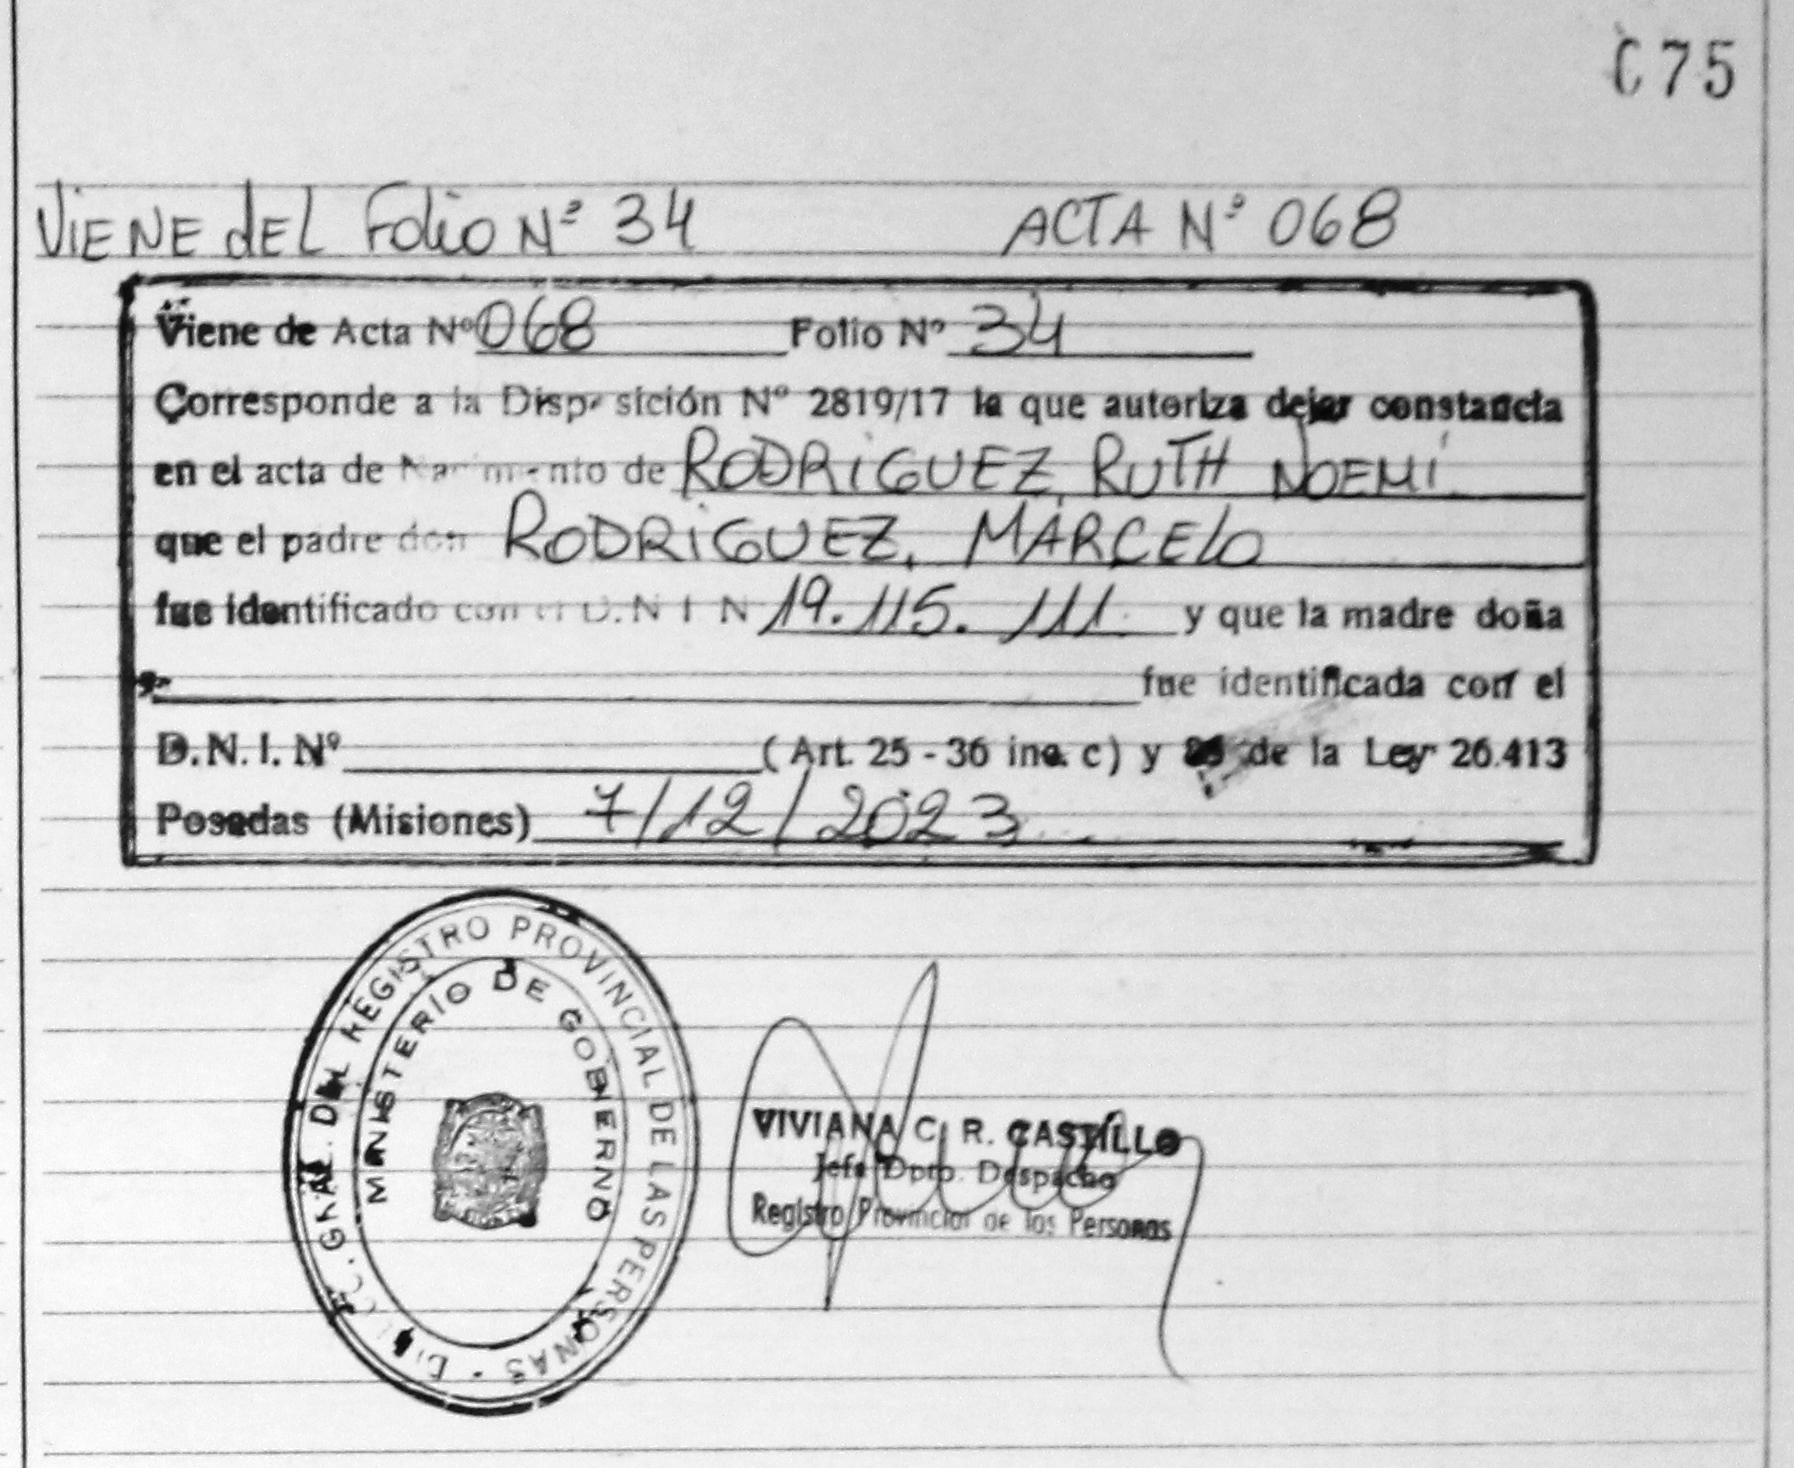 075
VIENE dEL Folio Nº 34 ACTA Nº 068
Viene de Acta Nº 068 Folio Nº 34
Corresponde a la Disposición Nº 2819/17 la que autoriza dejar constancia
en el acta de Nacimiento de RODRIGUEZ, RUTH NOEMÍ
que el padre don RODRIGUEZ, MARCELO
fue identificado con el D.N.I N 19.115.111. y que la madre doña
fue identificada con el
D.N.I. Nº ( Art. 25 - 36 inc. c) y de la Ley 26.413
Posadas (Misiones) 7/12/2023
GRAL. DEL REGISTRO PROVINCIAL DE LAS PERSONAS -
MINISTERIO DE GOBIERNO
VIVIANA C. R. CASTILLO
Jefa Dpto. Despacho
Registro Provincial de las Personas